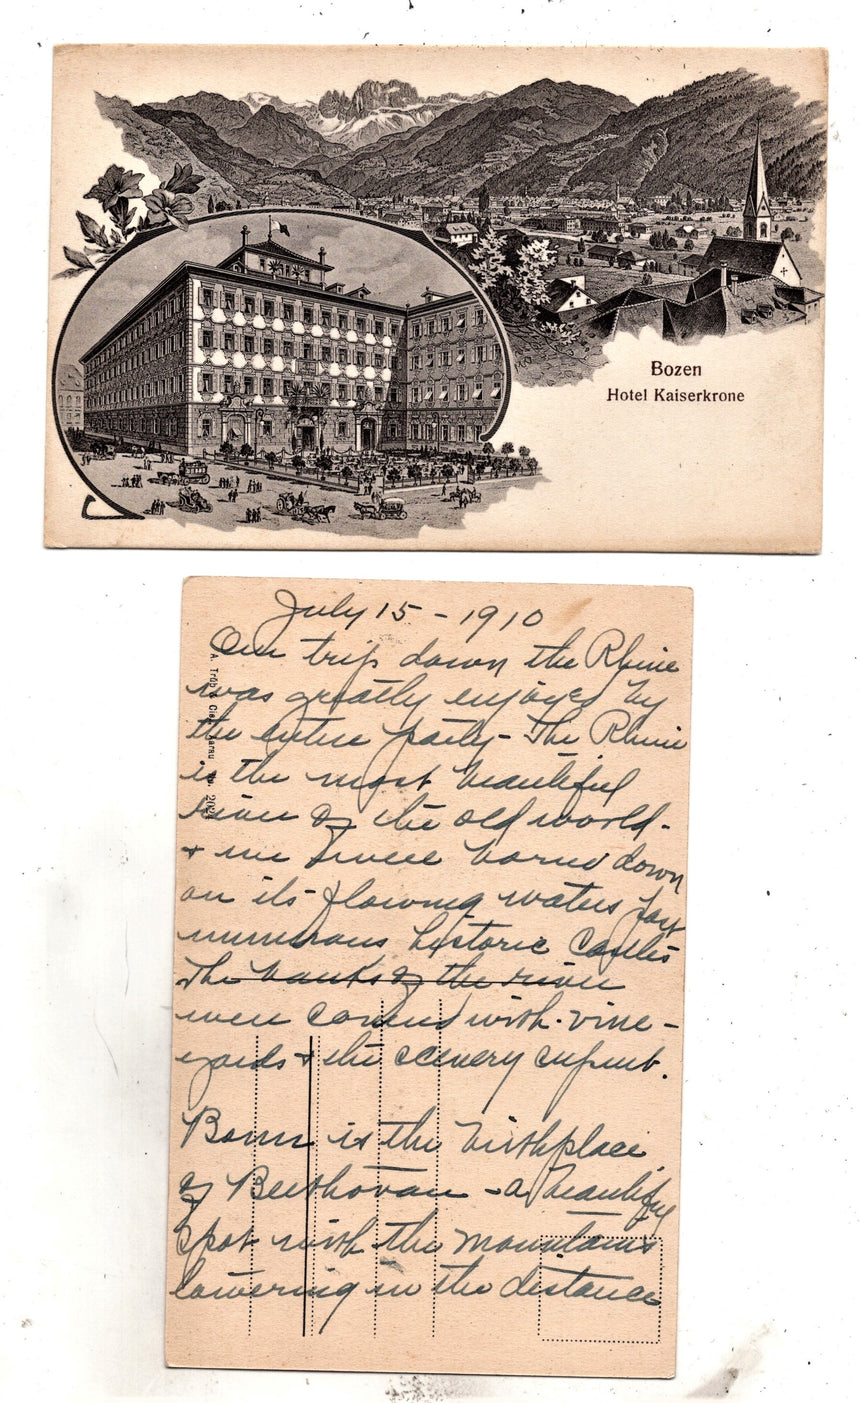 Bozen
Hotel Kaiserkrone
July 15 - 1910
Our trip down the Rhine
was greatly enjoyed by
the entire party - The Rhine
is the most beautiful
river of the old world -
+ we were borne down
on its flowing waters far
numerous historic castles
The banks of the river
were covered with vine-
yards + the scenery superb.
Bonn is the birthplace
of Beethovan - a beautiful
spot with the mountains
towering in the distance
A. Trüb & Cie. Aarau No.